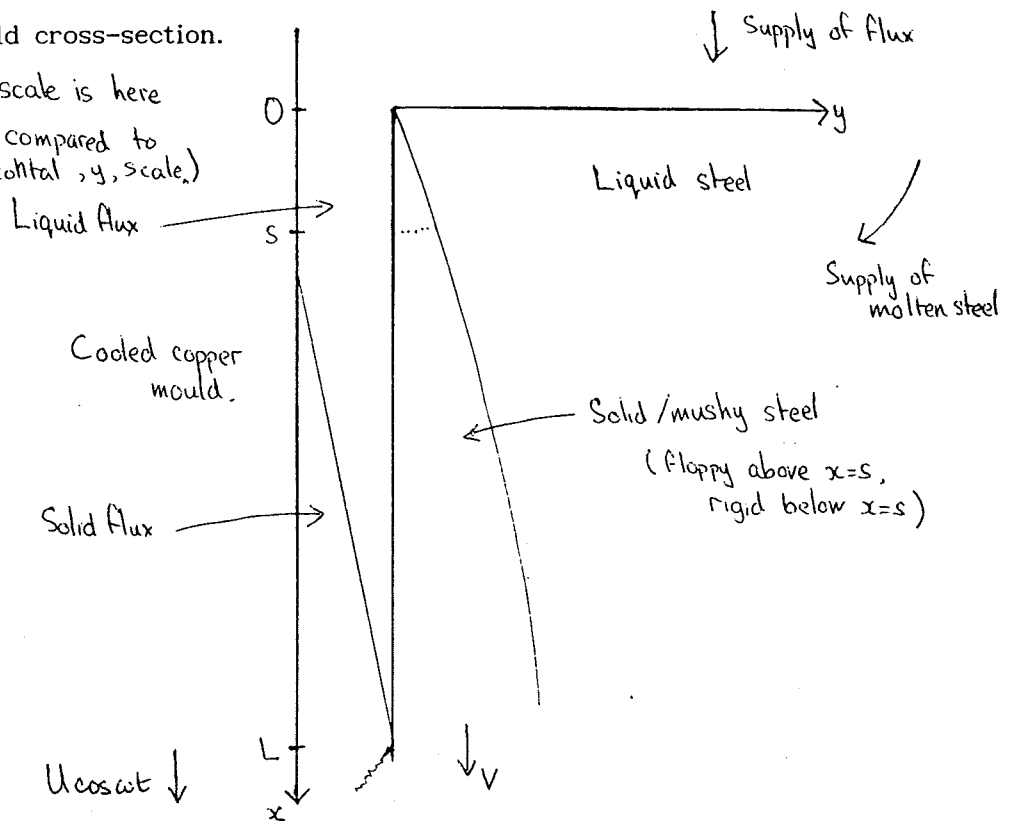 ld cross-section.
scale is here
compared to
contal, y, scale.)
Supply of flux
O
y
Liquid steel
Liquid flux
S
Supply of
molten steel
Cooled copper
mould.
Solid/mushy steel
(floppy above x=s,
rigid below x=s)
Solid flux
L
V
Ucosωt
x